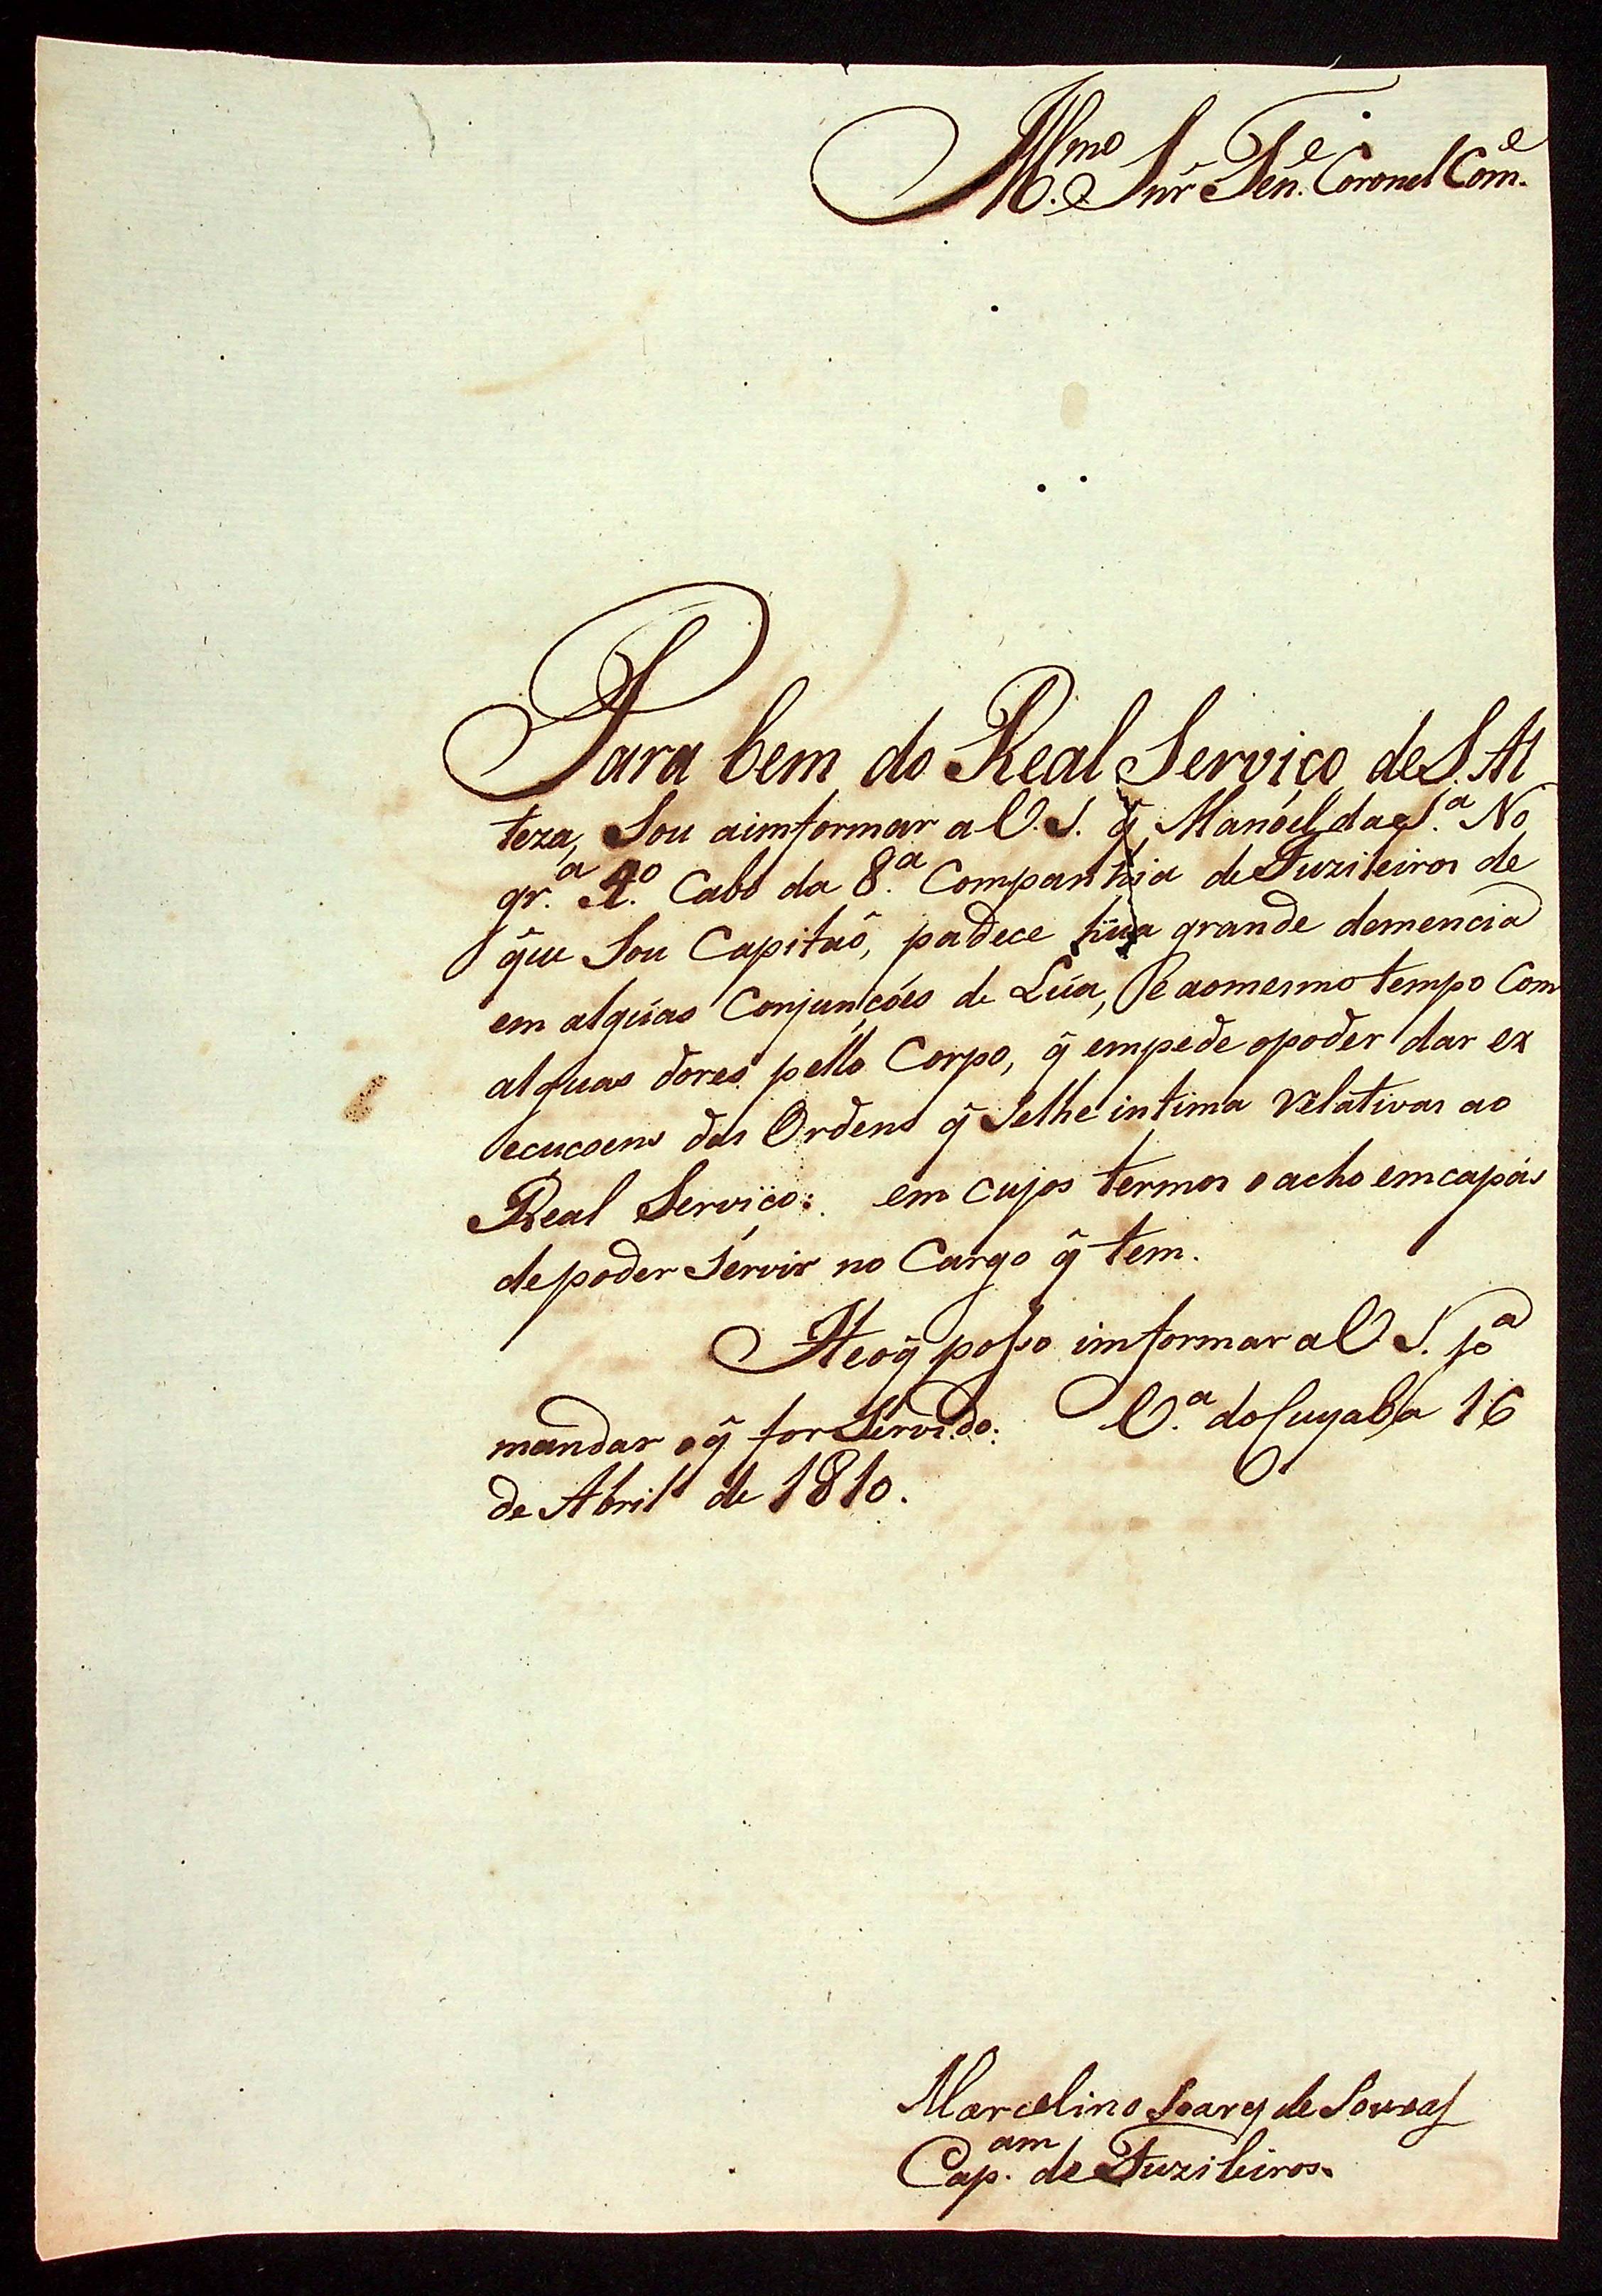 Illmo. Snr̃ Ten.e Coronel Com.e
Para bem do Real Serviço de S. Al
teza, Sou aimformar a V. S. q̃ Manoel da S.a No
gr.a 4.o Cabo da 8.a Companhia de Fuzileiros de
que Sou Capitaõ, padece hũa grande demencia
em algũas Conjunçóes de Lúa, e aomesmo tempo Com
alguas dores pello Corpo, q̃ empede opoder dar ex
ecucoens das Ordens q̃ Selhe intima relativas ao
Real Serviço: em cujos termos o acho emcapás
depoder Servir no Cargo q̃ tem.
He oq̃ poso imformar a V. S. p.a
mandar oq̃ for Servido. V.a do Cuyaba 16
de Abril de 1810.
Marcelino Soares de Souza
Cap.am de Fuzileiros.